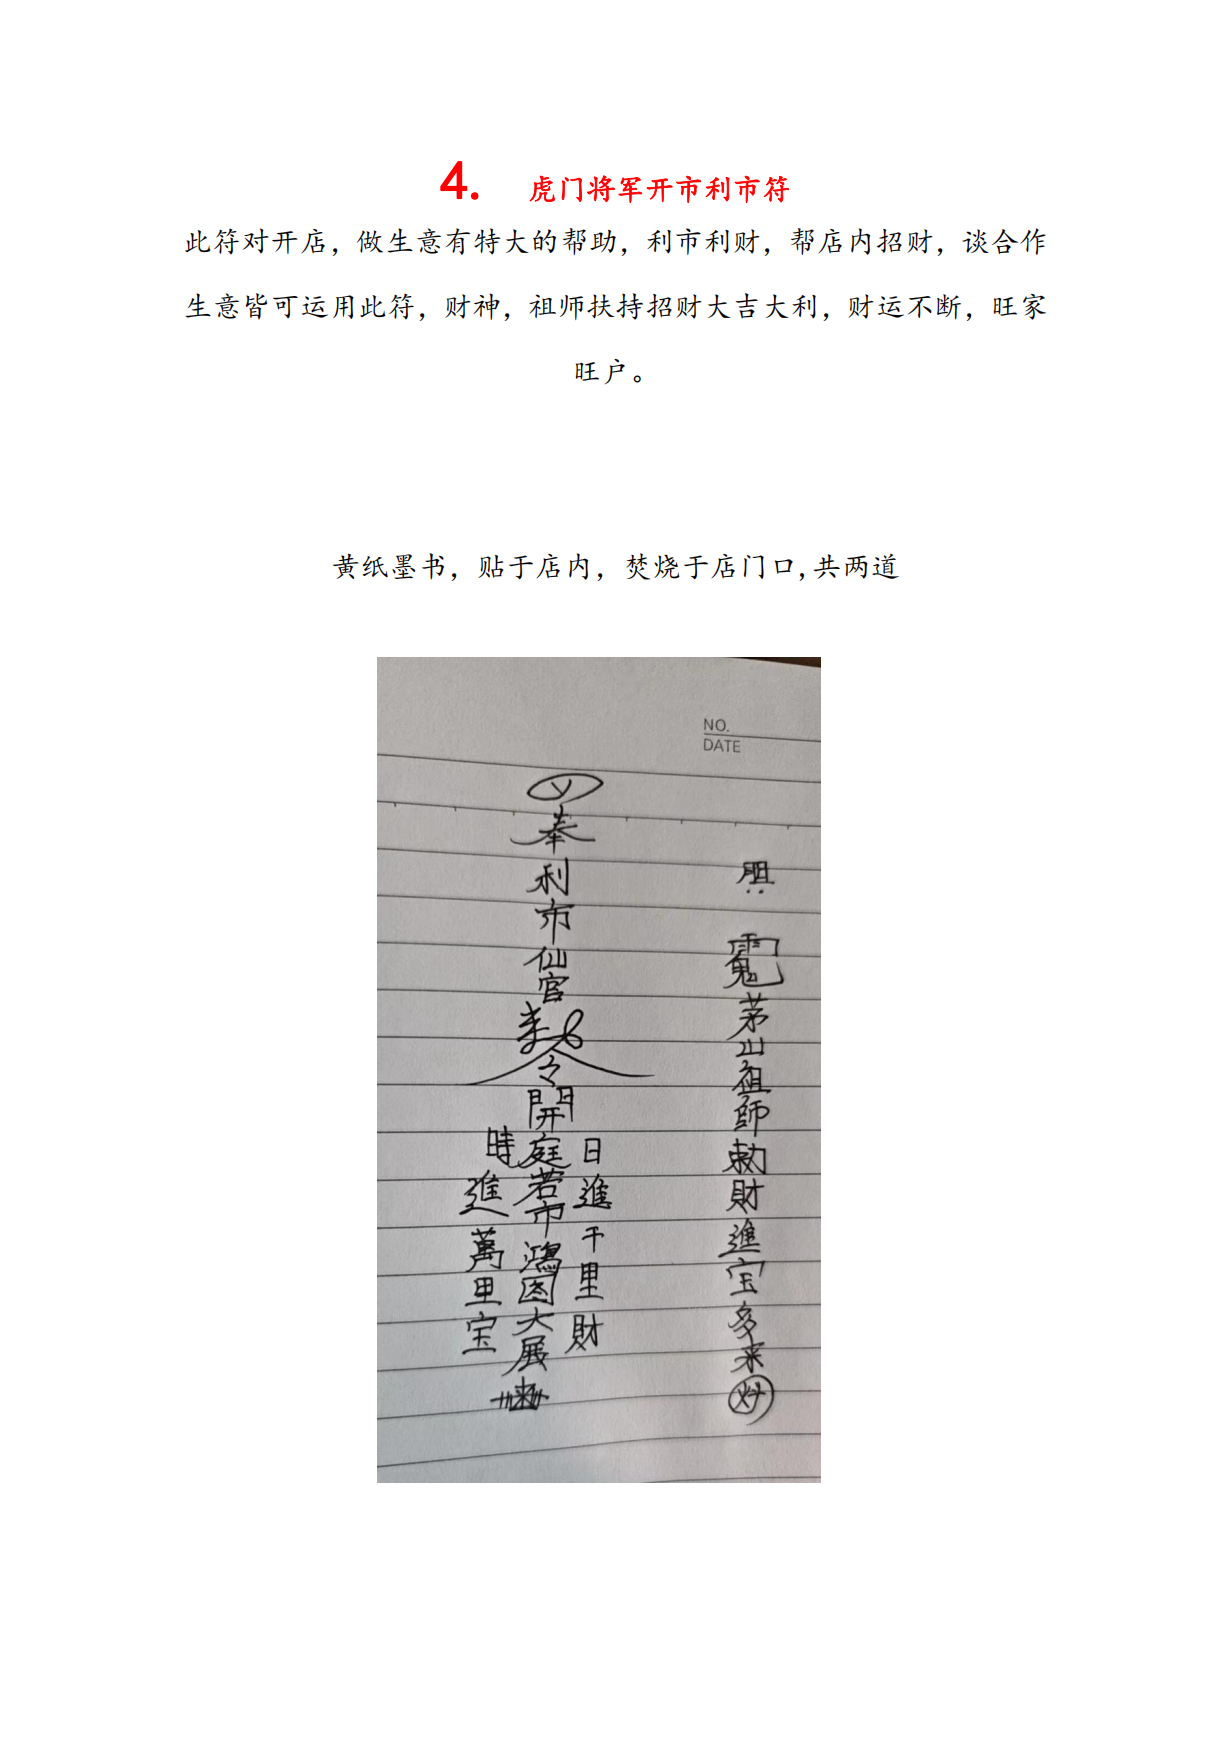 4. 虎门将军开市利市符
此符对开店，做生意有特大的帮助，利市利财，帮店内招财，谈合作
生意皆可运用此符，财神，祖师扶持招财大吉大利，财运不断，旺家
旺户。
黄纸墨书，贴于店内，焚烧于店门口,共两道
NO.
DATE
奉利市仙官
令開庭若市鴻图大展
日進千里財
時進萬里宝
胆
茅山祖師勅財進宝多来